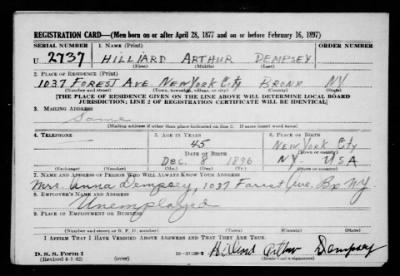 REGISTRATION CARD—(Men born on or after April 28, 1877 and on or before February 16, 1897)
SERIAL NUMBER 1. NAME (Print) ORDER NUMBER
U 2737 HILLIARD ARTHUR DEMPSEY
2. PLACE OF RESIDENCE (Print)
1037 FOREST AVE NEW YORK CITY BRONX NY
(Number and street) (Town, township, village, or city) (County) (State)
[THE PLACE OF RESIDENCE GIVEN ON THE LINE ABOVE WILL DETERMINE LOCAL BOARD
JURISDICTION; LINE 2 OF REGISTRATION CERTIFICATE WILL BE IDENTICAL]
3. MAILING ADDRESS
Same
(Mailing address if other than place indicated on line 2. If same insert word same)
4. TELEPHONE 5. AGE IN YEARS 6. PLACE OF BIRTH
45 NEW YORK CITY
DATE OF BIRTH (Town or county)
DEC. 8 1896 NY. USA
(Mo.) (Day) (Yr.) (State or country)
7. NAME AND ADDRESS OF PERSON WHO WILL ALWAYS KNOW YOUR ADDRESS
Mrs. Anna Dempsey, 1037 Forest Ave, Bx NY.
8. EMPLOYER'S NAME AND ADDRESS
Unemployed
9. PLACE OF EMPLOYMENT OR BUSINESS
(Number and street or R. F. D. number) (Town) (County) (State)
I AFFIRM THAT I HAVE VERIFIED ABOVE ANSWERS AND THAT THEY ARE TRUE.
D. S. S. Form 1
(Revised 4-1-42) Hilliard Arthur Dempsey